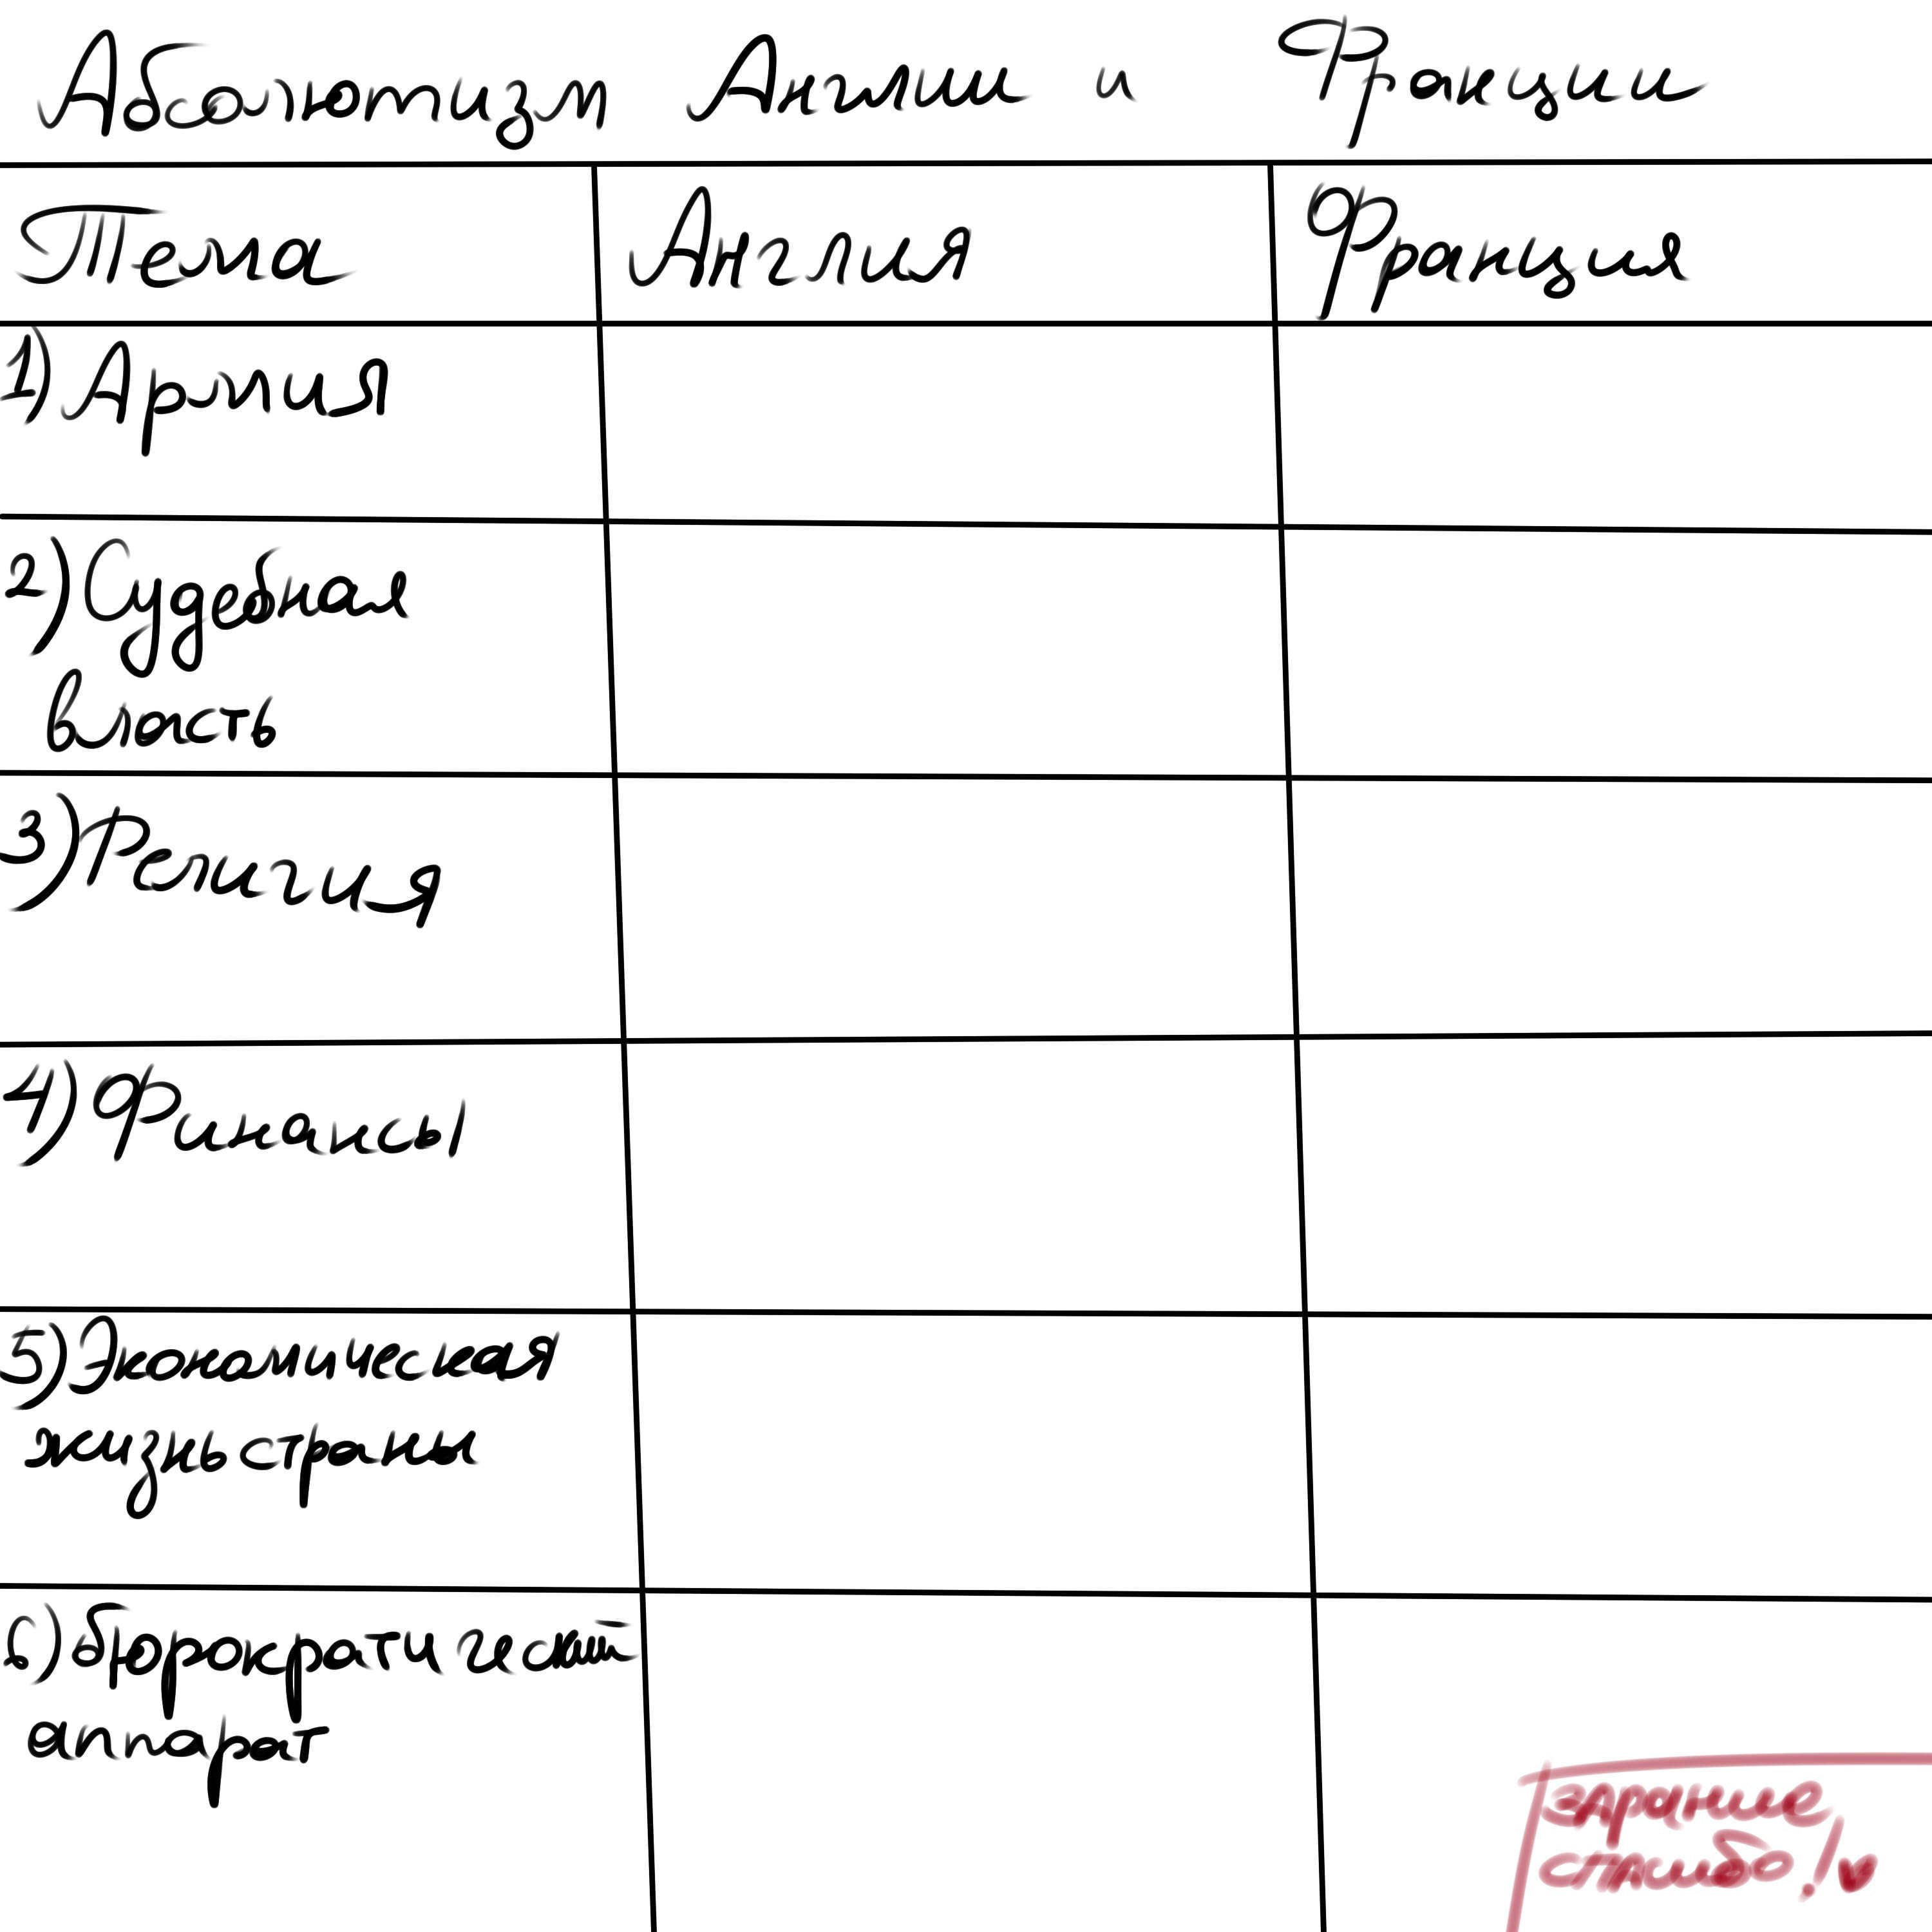 Абсолютизм Англии и Франции
Тема Англия Франция
1) Армия
2) Судебная
власть
3) Религия
4) Финансы
5) Экономическая
жизнь страны
6) бюрократический
аппарат
зарание
спасибо!